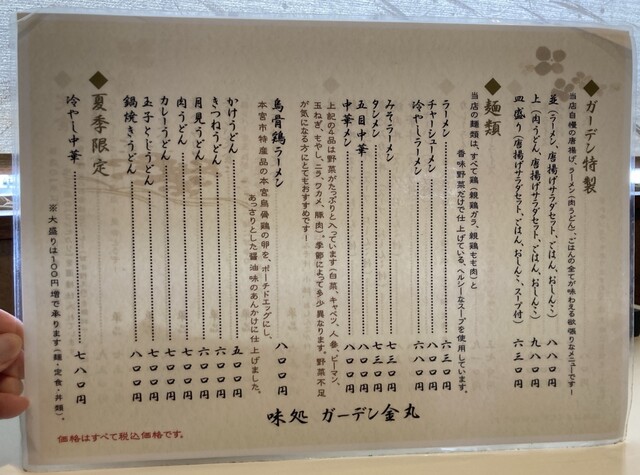 ◆ガーデン特製
当店自慢の唐揚げ、ラーメン(肉うどん)、ごはんの全てが味わえる欲張りなメニューです!
並(ラーメン、唐揚げサラダセット、ごはん、おしんこ) 八八〇円
上(肉うどん、唐揚げサラダセット、ごはん、おしんこ) 九八〇円
皿盛り(唐揚げサラダセット、ごはん、おしんこ、スープ付) 六三〇円
◆麺類
当店の麺類は、すべて鶏(親鶏ガラ、親鶏もも肉)と
香味野菜だけで仕上げている、ヘルシーなスープを使用しています。
ラーメン 六三〇円
チャーシューメン 八八〇円
冷やしラーメン 六八〇円
みそラーメン 七三〇円
タンメン 七三〇円
五目中華 八八〇円
中華メン 八〇〇円
上記の4品は野菜がたっぷりと入っています(白菜、キャベツ、人参、ピーマン、
玉ねぎ、もやし、ニラ、ワカメ、豚肉)。季節によって多少異なります。野菜不足
が気になる方にとてもおすすめです!
烏骨鶏ラーメン 八〇〇円
本宮市特産品の本宮烏骨鶏の卵を、ポーチドエッグにし、
あっさりとした醤油味のあんかけに仕上げました。
かけうどん 五〇〇円
きつねうどん 六〇〇円
月見うどん 六〇〇円
肉うどん 七〇〇円
カレーうどん 七〇〇円
玉子とじうどん 七〇〇円
鍋焼きうどん 八〇〇円
◆夏季限定
冷やし中華 七八〇円
※大盛りは100円増で承ります(麺・定食・丼類)。
味処 ガーデン金丸
価格はすべて税込価格です。